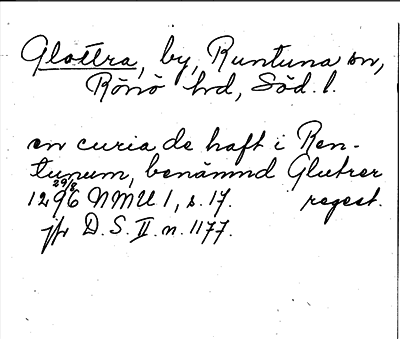 Glottra, by, Runtuna sn,
Rönö hd, Söd. l.
en curia de haft i Ren-
tunum, benämnd Glutrer
29/8
1296 NMU 1, s. 17. regest.
jfr D. S. II n. 1177.